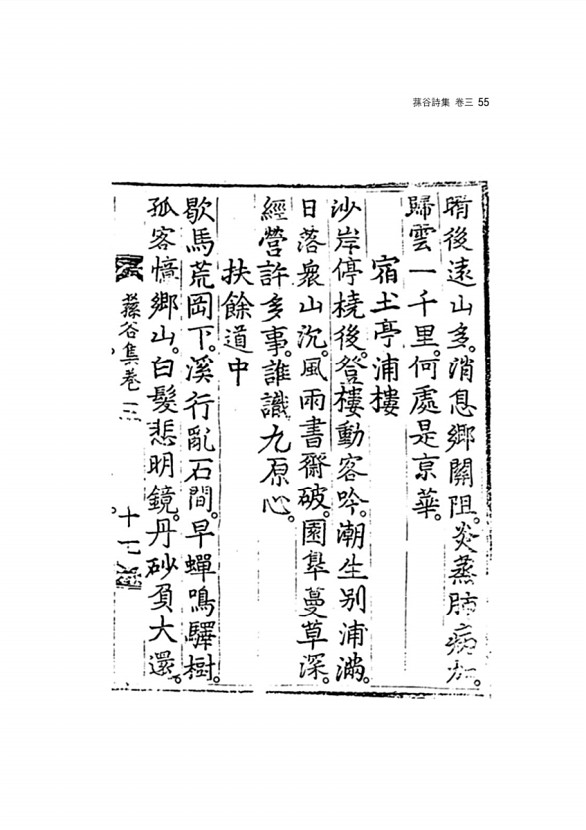 蓀谷詩集 卷三 55
晴後遠山多。消息鄉關阻。炎蒸肺病加。
歸雲一千里。何處是京華。
宿土亭浦樓
沙岸停橈後。登樓動客吟。潮生別浦滿。
日落衆山沉。風雨書齋破。園皐蔓草深。
經營許多事。誰識九原心。
扶餘道中
歇馬荒岡下。溪行亂石間。早蟬鳴驛樹。
孤客憶鄉山。白髮悲明鏡。丹砂負大還。
蓀谷集卷三
十七